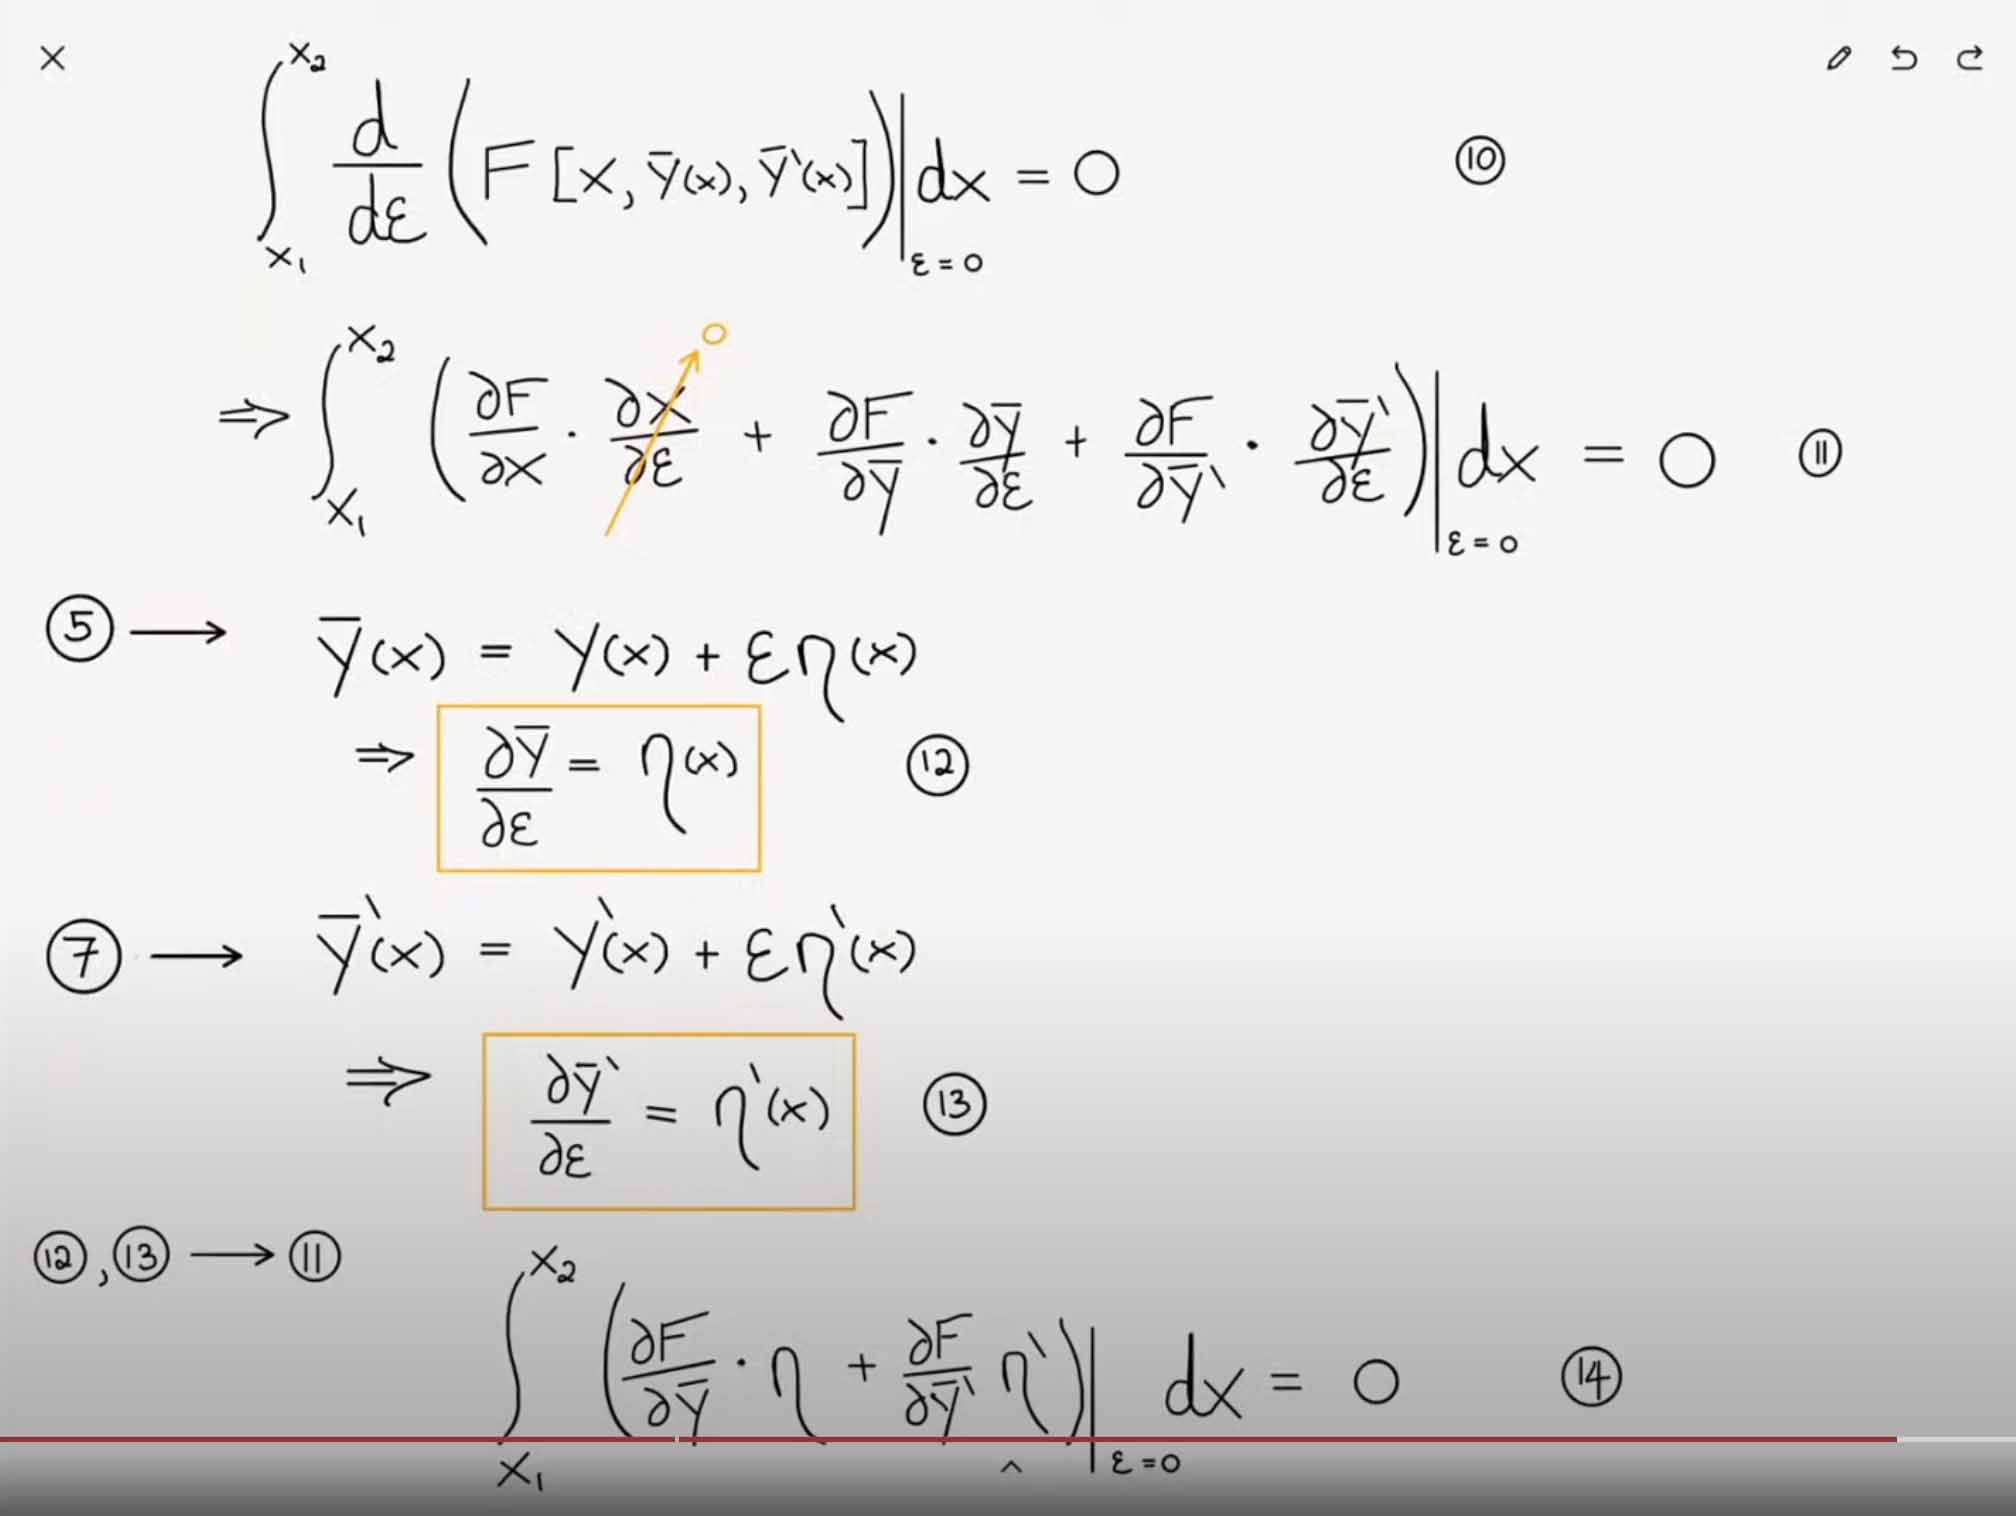 ∫_{x₁}^{x₂} d/dε (F[x, ȳ(x), ȳ'(x)])|_{ε=0} dx = 0 ⑩
⇒ ∫_{x₁}^{x₂} (∂F/∂x · ∂x/∂ε + ∂F/∂ȳ · ∂ȳ/∂ε + ∂F/∂ȳ' · ∂ȳ'/∂ε)|_{ε=0} dx = 0 ⑪
0
⑤ → ȳ(x) = y(x) + εη(x)
⇒ ∂ȳ/∂ε = η(x) ⑫
⑦ → ȳ'(x) = y'(x) + εη'(x)
⇒ ∂ȳ'/∂ε = η'(x) ⑬
⑫, ⑬ → ⑪
∫_{x₁}^{x₂} (∂F/∂ȳ · η + ∂F/∂ȳ' η')|_{ε=0} dx = 0 ⑭